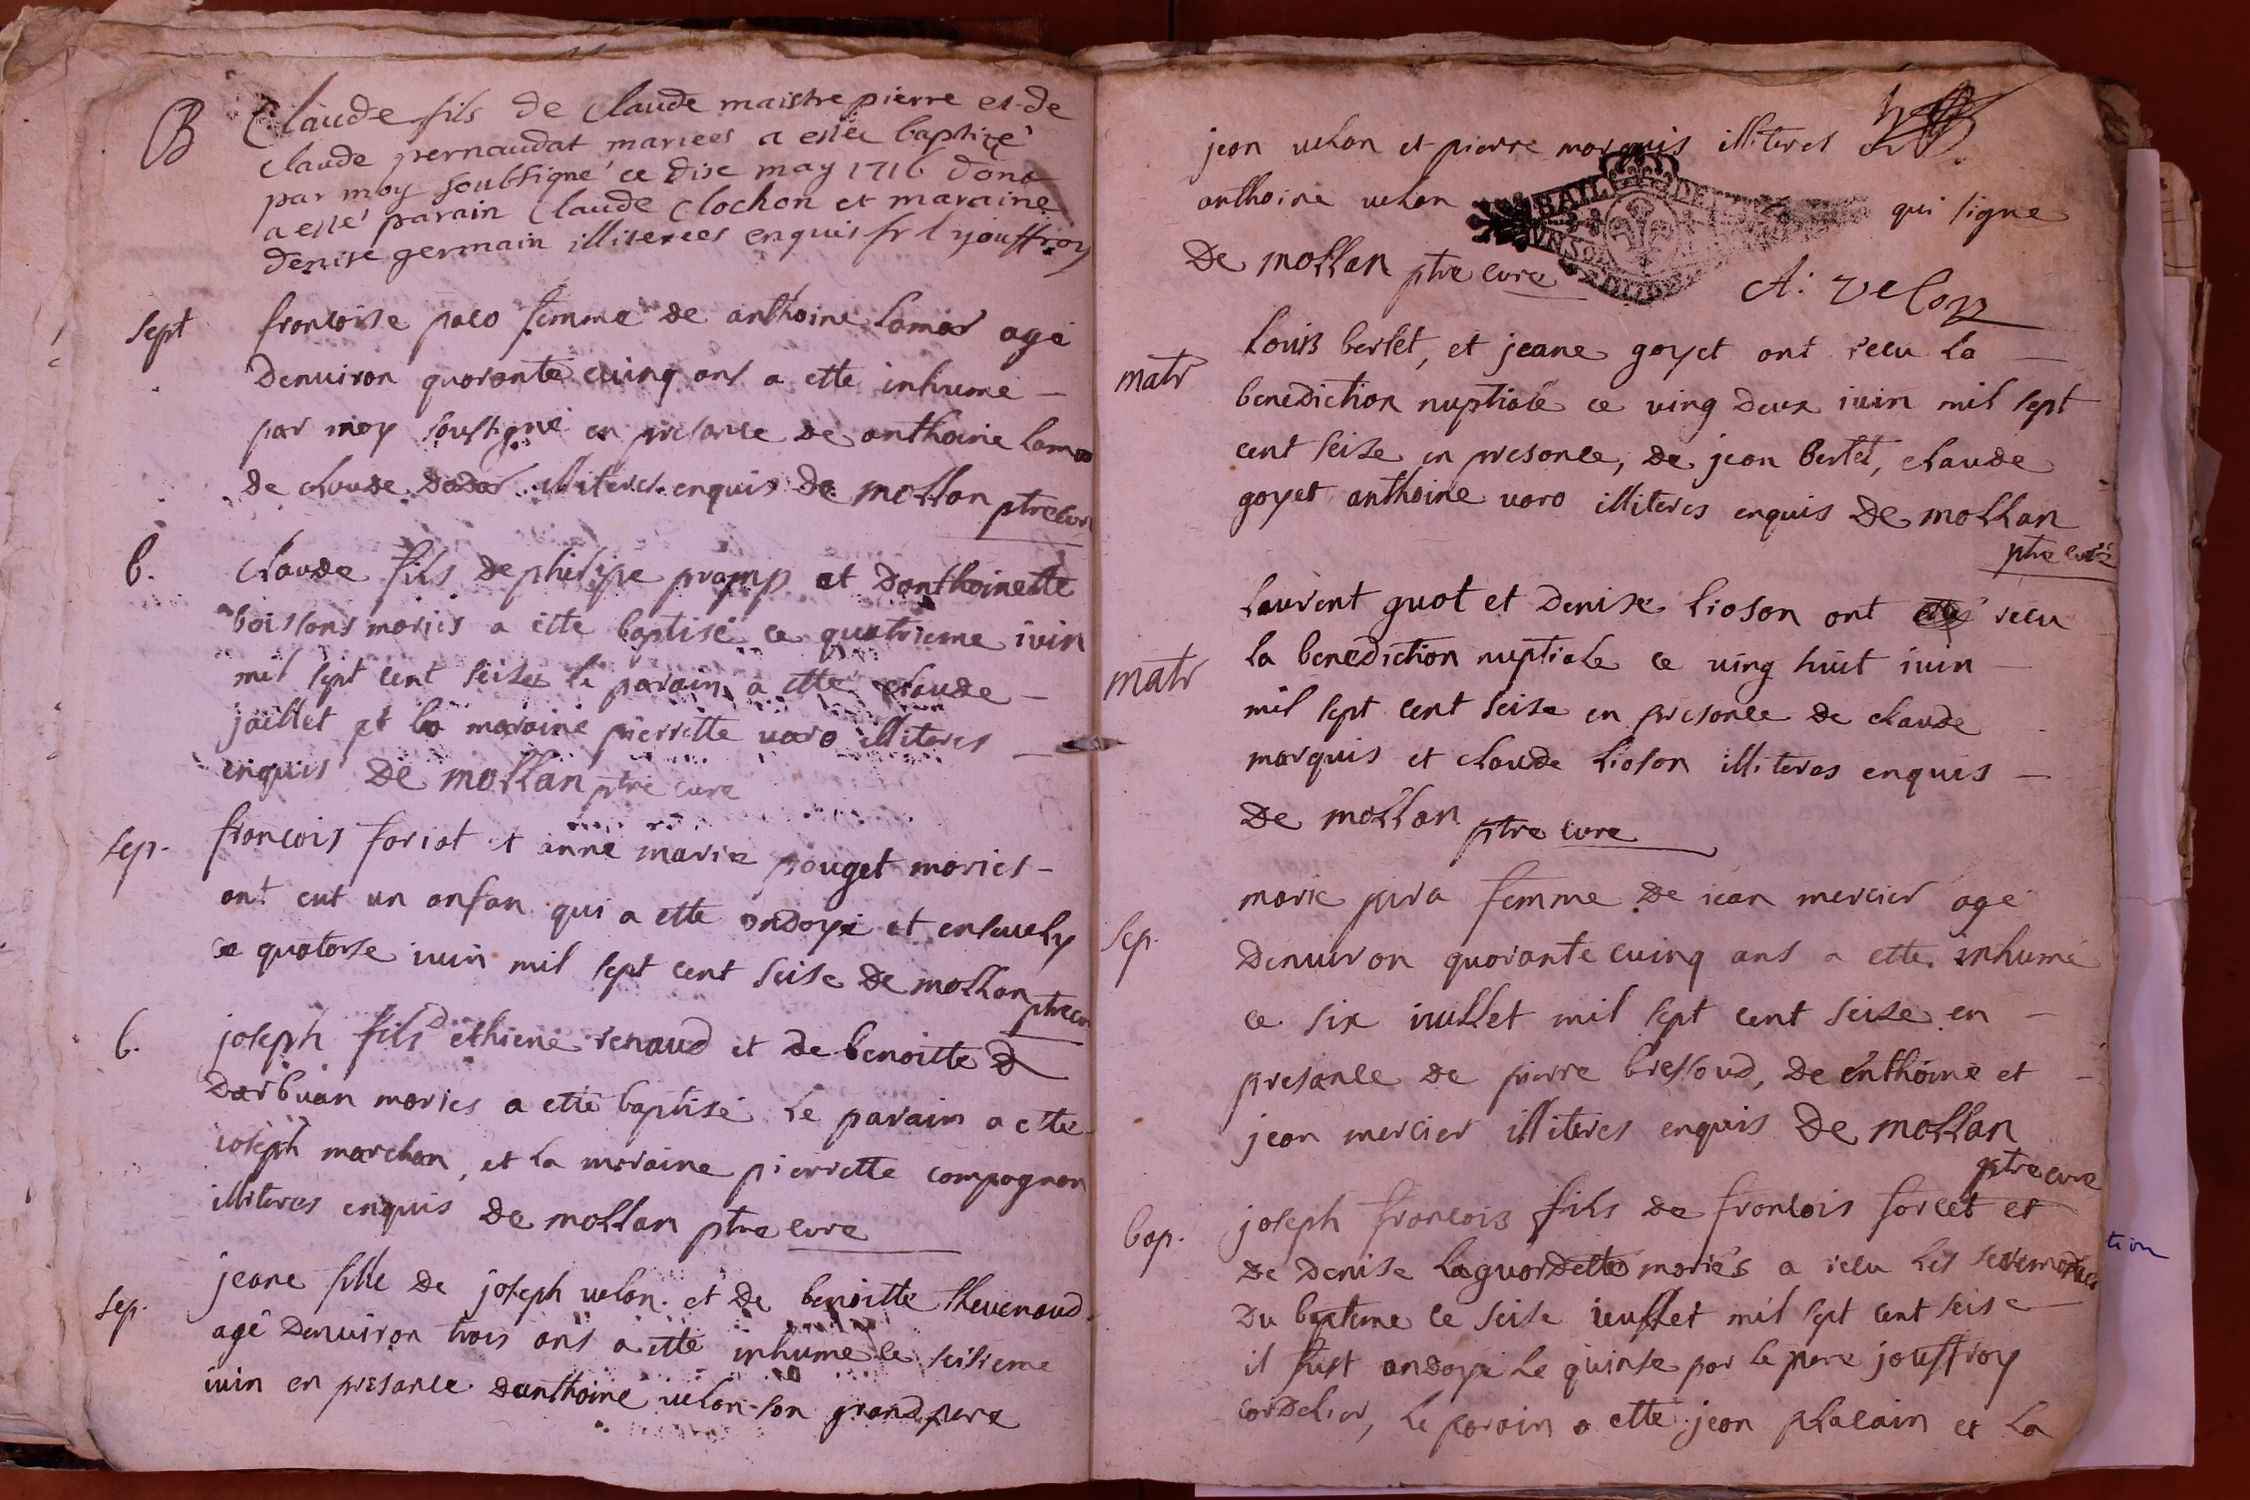 B Claude fils de Claude maistrepierre et de
claude pernaudat mariees a estee baptizé
par moy soubsigné ce dix may 1716 dont
a esté parain Claude Clochon et maraine
denise germain illiterees enquis fr l jouffroy
sept francoise paco femme de anthoine lamar agé
denuiron quarante cuinq ans a ette inhume
par moy soustigné en presance de anthoine lamar
de claude illiteres enquis De mollan ptre cure
b. claude fils de philipe pramp et danthoinette
boissons maries a ette baptisé ce quatrieme iuin
mil sept cent seise le parain a ette claude
jaillet et la maraine pierrette varo illiteres
enquis De mollan ptre cure
sep. francois foriat et anne marie pouget maries
ont eut un anfan qui a ette ondoye et enseuely
ce quatorse iuin mil sept cent seise De mollan ptre cure
b. joseph fils d ethiene renaud et de benoitte D
Darbuan maries a ette baptisé le parain a ette
ioseph marchan, et la maraine pierrette compagnon
illiteres enquis De mollan ptre cure
sep. jeane fille de joseph uelon et de benoitte theuenaud
agé denuiron trois ans a ette inhume le seisieme
iuin en presance danthoine uelon son grand pere
jean uelon et pierre marquis illiteres
anthoine uelon qui signe
BAIL DE
De mollan ptre cure
A. velon
matr Louis berlet, et jeane goyet ont recu la
benediction nuptiale ce uing deux iuin mil sept
cent seise en presance, de jean berlet, claude
goyet anthoine varo illiteres enquis De mollan
ptre curé
laurent guot et denise lioson ont recu
matr la benediction nuptiale ce uing huit iuin
mil sept cent seise en presance de claude
marquis et claude lioson illiteres enquis
De mollan ptre cure
marie pira femme de iean mercier agé
sep. denuiron quarante cuinq ans a ette inhumé
ce six iuillet mil sept cent seize en
presance de pierre bressoud, de enthoine et
jean mercier illiteres enquis De mollan
ptre cure
bap. joseph francois fils de francois forcet et
de denise laguardette mariés a recu les
du bapteme ce seise ieullet mil sept cent seise
il fust ondoyé le quinse par le pere jouffroy
cordelier, le parain a ette jean placain et la
tion